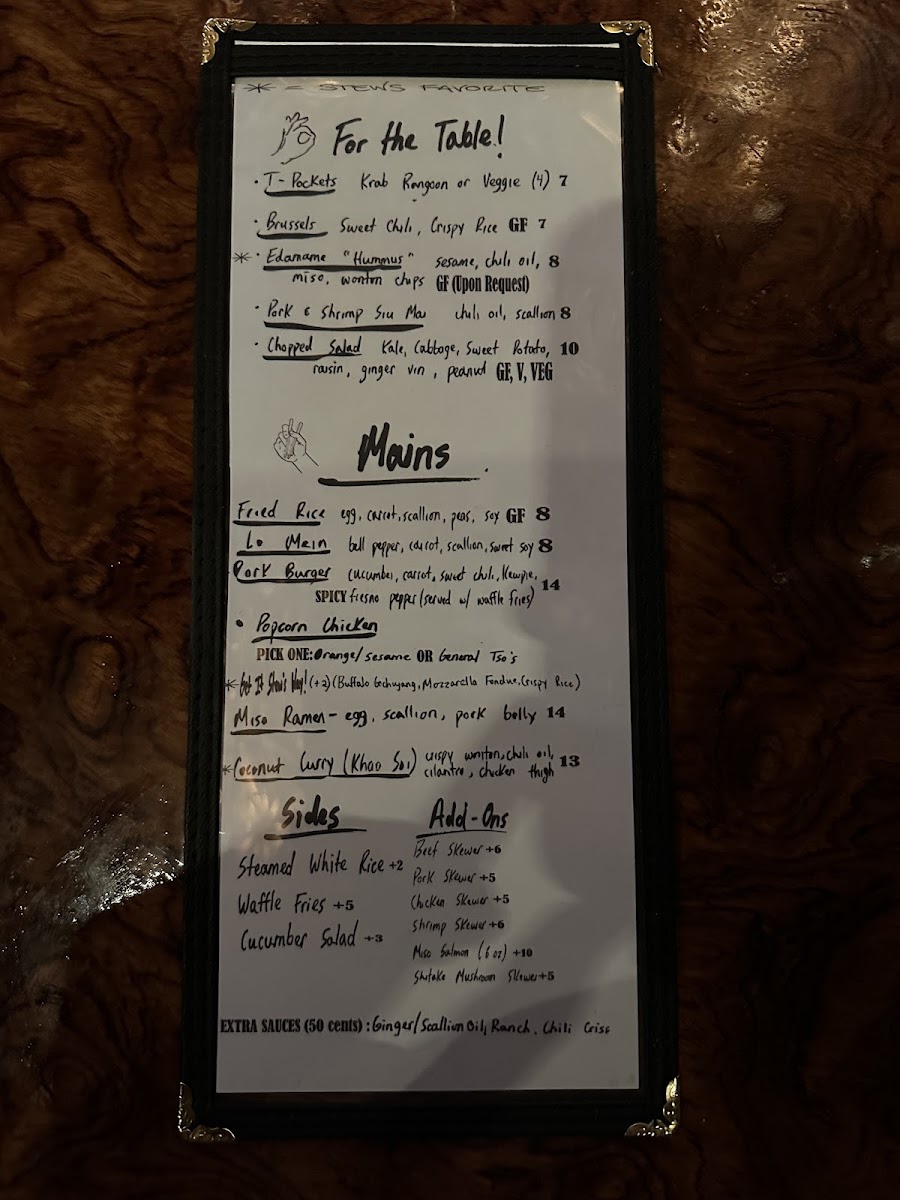 * = STEWS FAVORITE
For the Table!
· T-Pockets Krab Rangoon or Veggie (4) 7
· Brussels Sweet Chili, Crispy Rice GF 7
* · Edamame "Hummus" sesame, chili oil, 8
miso, wonton chips GF (Upon Request)
· Pork & Shrimp Siu Mai chili oil, scallion 8
· Chopped Salad Kale, Cabbage, Sweet Potato, 10
raisin, ginger vin, peanut GF, V, VEG
Mains
Fried Rice egg, carrot, scallion, peas, soy GF 8
Lo Mein bell pepper, carrot, scallion, sweet soy 8
Pork Burger cucumber, carrot, sweet chili, Kewpie, 14
SPICY fresno pepper (served w/ waffle fries)
• Popcorn Chicken
PICK ONE: Orange/sesame OR General Tso's
* Get It Stew's Way! (+2) (Buffalo Gochujang, Mozzarella Fondue, Crispy Rice)
Miso Ramen - egg, scallion, pork belly 14
* Coconut Curry (Khao Soi) crispy wonton, chili oil, 13
cilantro, chicken thigh
Sides
Steamed White Rice +2
Waffle Fries +5
Cucumber Salad +3
Add-Ons
Beef Skewer +6
Pork Skewer +5
Chicken Skewer +5
Shrimp Skewer +6
Miso Salmon (6 oz) +10
Shitake Mushroom Skewer +5
EXTRA SAUCES (50 cents) : Ginger/Scallion Oil, Ranch, Chili Crisp